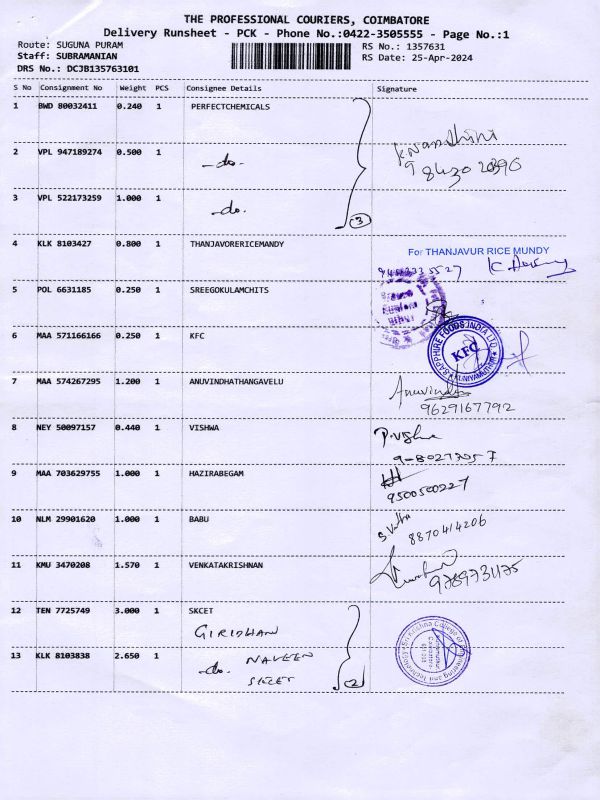 THE PROFESSIONAL COURIERS, COIMBATORE
Delivery Runsheet - PCK - Phone No.:0422-3505555 - Page No.:1
Route: SUGUNA PURAM
Staff: SUBRAMANIAN
DRS No.: DCJB135763101
RS No.: 1357631
RS Date: 25-Apr-2024
S No Consignment No Weight PCS Consignee Details Signature
1 BWD 80032411 0.240 1 PERFECTCHEMICALS
2 VPL 947189274 0.500 1 -do-
K.Nandhini
3 VPL 522173259 1.000 1 -do-
3
4 KLK 8103427 0.800 1 THANJAVORERICEMANDY
For THANJAVUR RICE MUNDY
5 POL 6631185 0.250 1 SREEGOKULAMCHITS
6 MAA 571166166 0.250 1 KFC
SAPPHIRE FOODS INDIA LTD.
KFC
KUNIYAMUTHUR
7 MAA 574267295 1.200 1 ANUVINDHATHANGAVELU
Anuvindha
9629167792
8 NEY 50097157 0.440 1 VISHWA
P.Vishwa
9 MAA 703629755 1.000 1 HAZIRABEGAM
9500500227
10 NLM 29901620 1.000 1 BABU
8870414206
11 KMU 3470208 1.570 1 VENKATAKRISHNAN
9789731175
12 TEN 7725749 3.000 1 SKCET
GIRIDHAN
13 KLK 8103838 2.650 1 -do- NAVEEN
SKCET
2
Sri Krishna College of Engineering and Technology